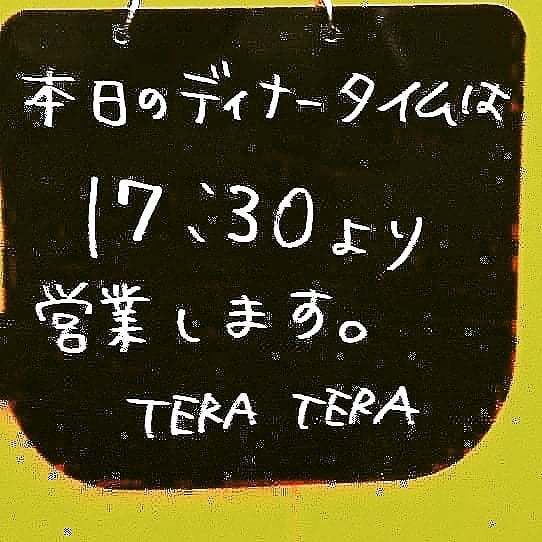 本日のディナータイムは
17:30より
営業します。
TERA TERA